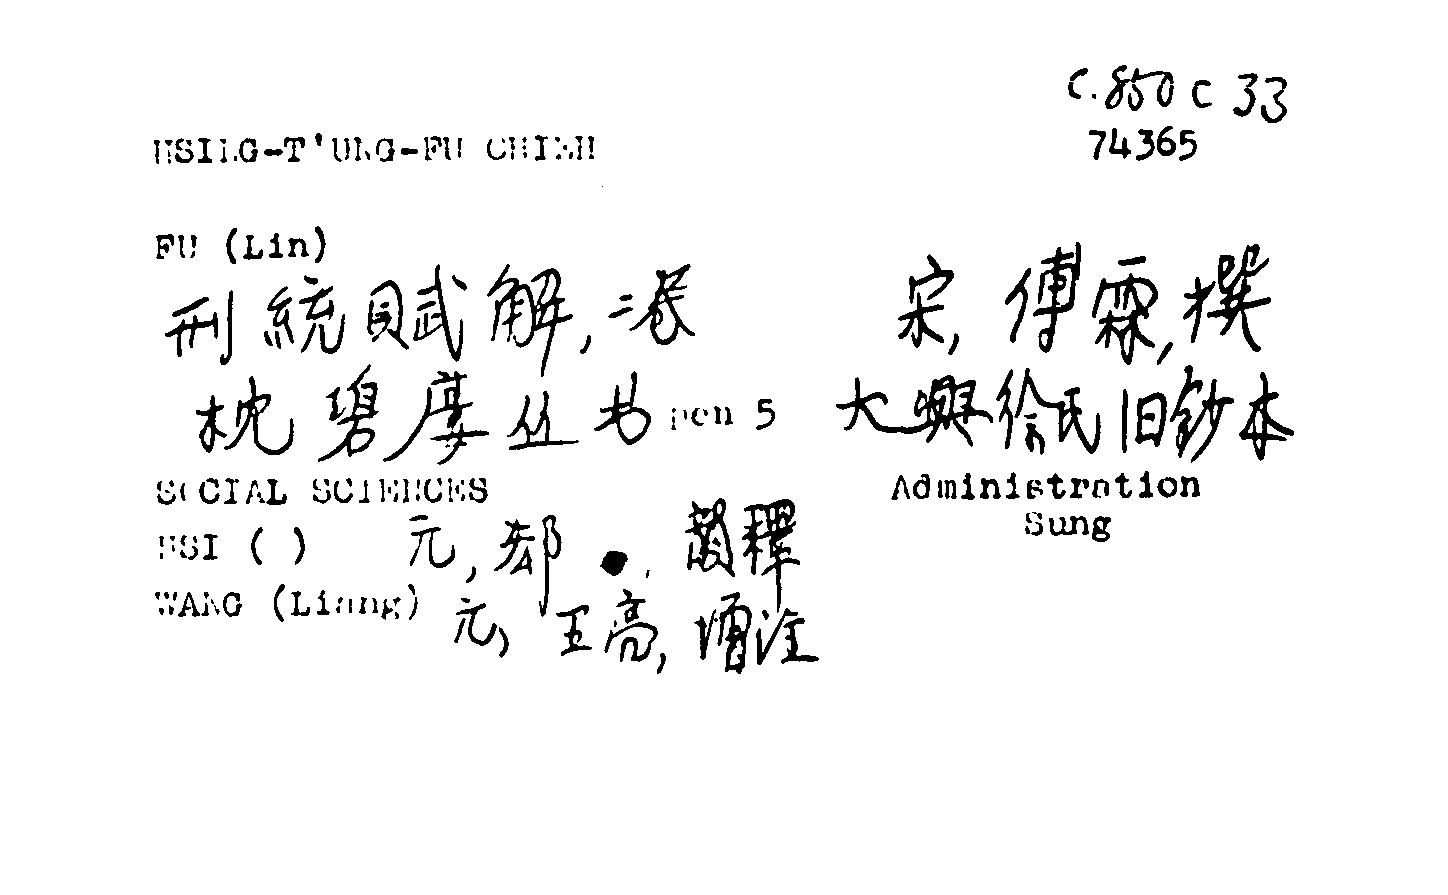 C.850 C 33
HSING-T'UNG-FU CHIEH
74365
FU (Lin)
刑統賦解, 二卷 宋, 傅霖, 撰
枕碧廔丛书 pen 5 大興徐氏旧鈔本
SOCIAL SCIENCES Administration
Sung
HSI ( ) 元, 郄 ●, 韵釋
WANG (Liang) 元, 王亮, 增注